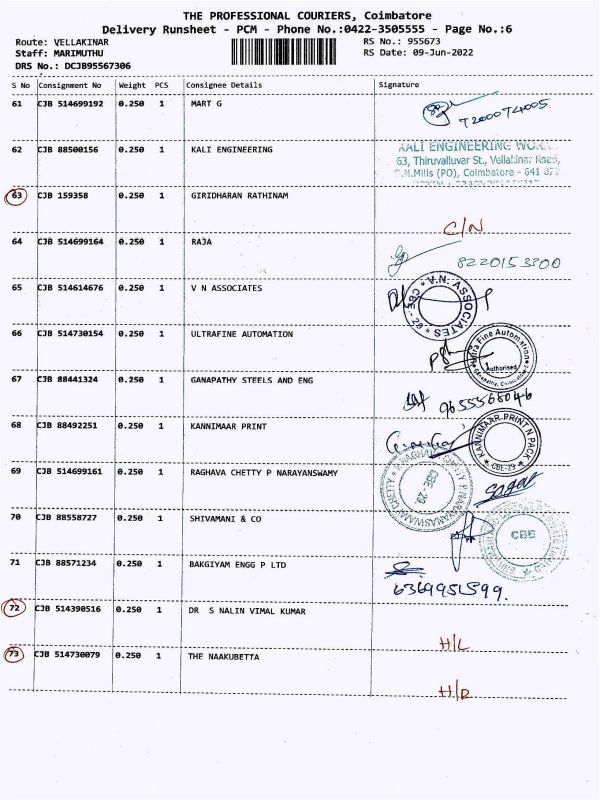 THE PROFESSIONAL COURIERS, Coimbatore
Delivery Runsheet - PCM - Phone No.:0422-3505555 - Page No.:6
Route: VELLAKINAR
RS No.: 955673
Staff: MARIMUTHU
RS Date: 09-Jun-2022
DRS No.: DCJB95567306
S No Consignment No Weight PCS Consignee Details Signature
61 CJB 514699192 0.250 1 MART G
62 CJB 88500156 0.250 1 KALI ENGINEERING
KALI ENGINEERING
63, Thiruvalluvar St., Vellakinar Road,
(PO), Coimbatore - 641
63 CJB 159358 0.250 1 GIRIDHARAN RATHINAM
C/N
64 CJB 514699164 0.250 1 RAJA
8220153300
65 CJB 514614676 0.250 1 V N ASSOCIATES
V.N. ASSOCIATES * CBE - 29 *
66 CJB 514730154 0.250 1 ULTRAFINE AUTOMATION
Ultra Fine Automation
Authorised
67 CJB 88441324 0.250 1 GANAPATHY STEELS AND ENG
9655568046
68 CJB 88492251 0.250 1 KANNIMAAR PRINT
KANNIMAAR PRINT N PACK
CBE-29
69 CJB 514699161 0.250 1 RAGHAVA CHETTY P NARAYANSWAMY
CBE - 29.
70 CJB 88558727 0.250 1 SHIVAMANI & CO
CBE
71 CJB 88571234 0.250 1 BAKGIYAM ENGG P LTD
6369951599.
72 CJB 514390516 0.250 1 DR S NALIN VIMAL KUMAR
H/L
73 CJB 514730079 0.250 1 THE NAAKUBETTA
H/D